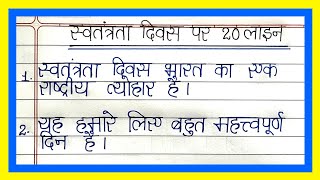 स्वतंत्रता दिवस पर 20 लाइन
1. स्वतंत्रता दिवस भारत का एक
राष्ट्रीय त्योहार है।
2. यह हमारे लिए बहुत महत्वपूर्ण
दिन है।